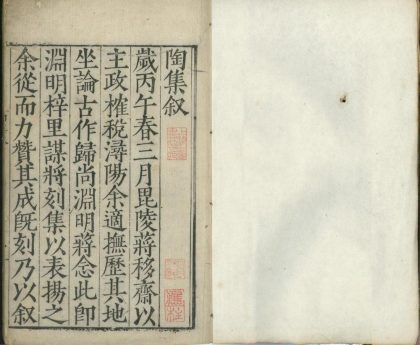 陶集叙
歲丙午春三月毘陵蔣移齋以
主政榷稅潯陽余適撫歷其地
坐論古作歸尚淵明蔣念此即
淵明梓里謀將刻集以表揚之
余從而力贊其成既刻乃以叙